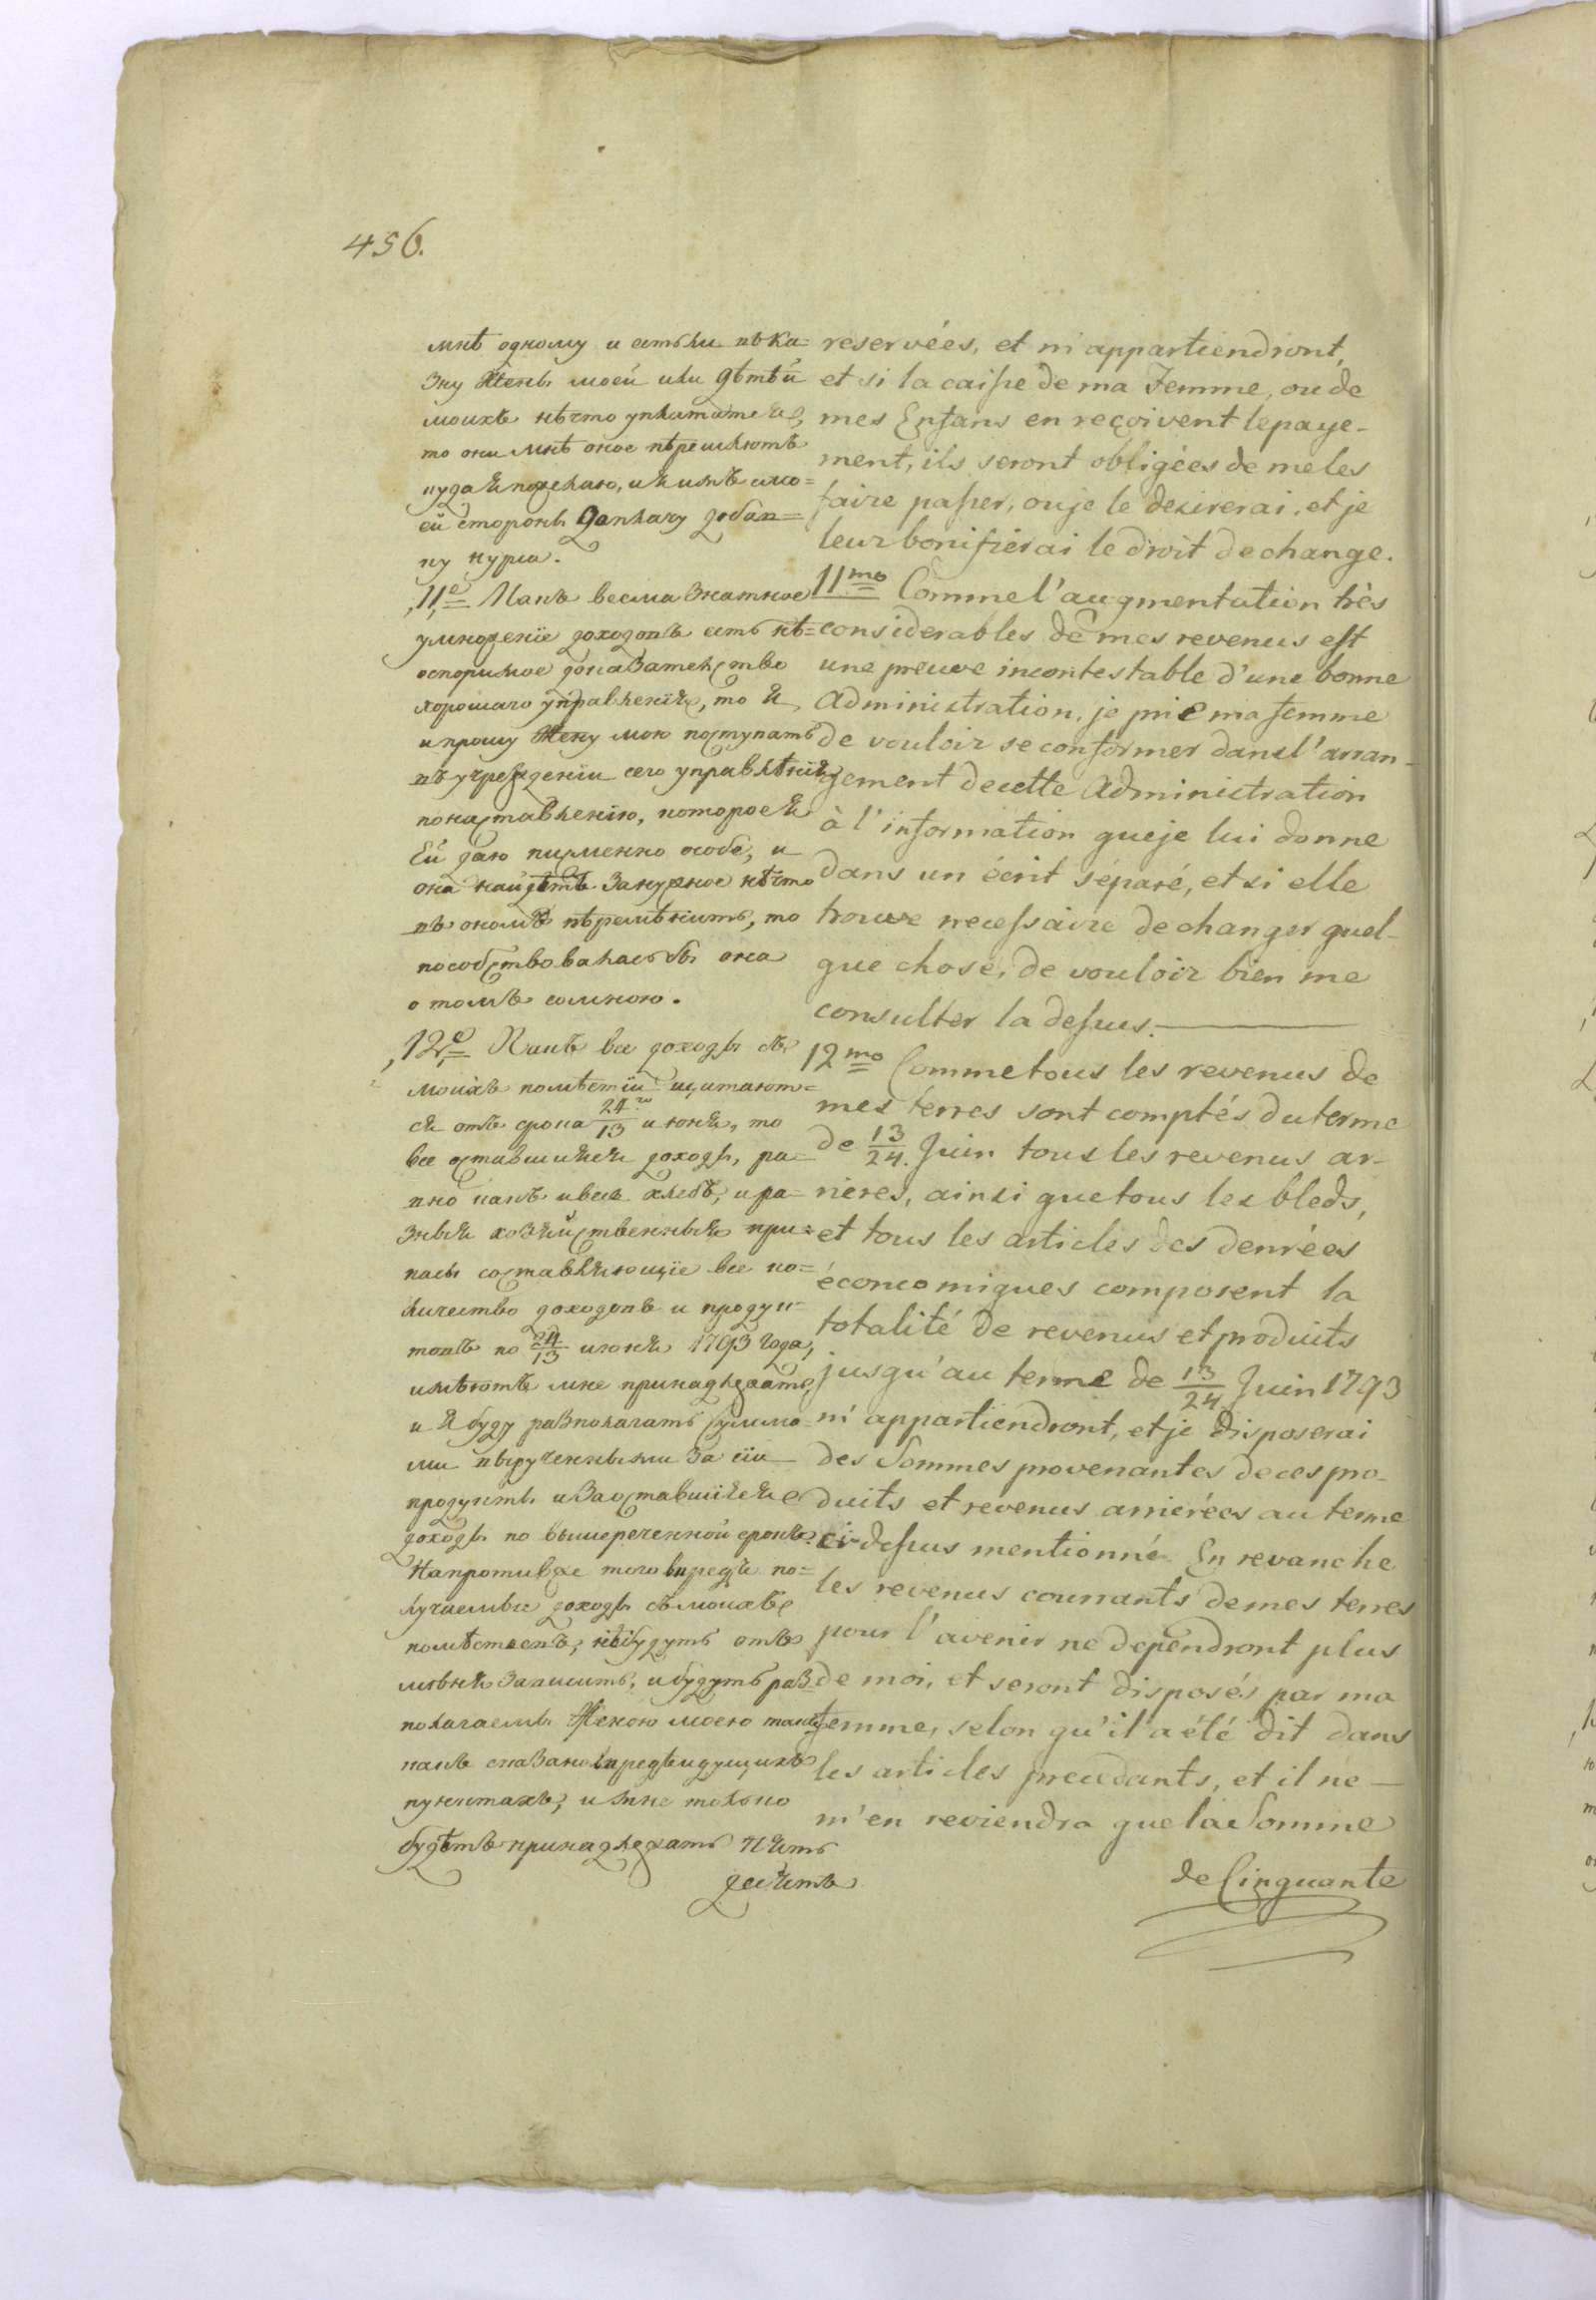 456.
мнѣ одному и естьли въ ка=
зну Жены моей или дѣтѣй
моихъ нѣчто уплатится,
то они мнѣ оное перешлютъ
куда я пожелаю, и я имъ смо=
ей стороны доплачу добав=
ку курса.
11е Какъ весма знатное
умножение доходовъ есть нѣ=
оспоримое доказателство
хорошаго управления, то я
и прошу Жену мою поступать
въ учреждении сего управлѣния
по наставлению, которое я
Ей даю писменно особе, и
она найдѣтъ за нужное нѣчто
въ ономъ пѣремѣнить, то
посовѣтовалась бы она
о томъ со мною.
12е Какъ все доходы съ
моихъ помѣстий щитают=
ся отъ срока 24го/13 июня, то
все оставшияся доходы, ра=
вно какъ и весь хлебъ, и ра=
зныя хозяйственныя при=
пасы составляющие все ко=
личество доходовъ и продук=
товъ по 24/13 июня 1793 года,
имѣютъ мне принадлежать,
и я буду располагать сумма=
ми вырученными за сии
продукты и за оставшияся
доходы по вышереченной срокъ.
Напротивже того впредь по=
лучаемыя доходы съ моихъ
помѣстьевъ, не будутъ отъ
меня зависить, и будутъ раз=
полагаемы Женою моею такъ
какъ сказано впредъидущихъ
пунктахъ, и мне только
будѣтъ принадлежать пять
десятъ
reservées, et m'appartiendront,
et si la caisse de ma Femme, ou de
mes Enfans en reçoivent lepaye-
ment, ils seront obligées de me les
faire passer, ou je le desirerai, et je
leur bonifierai le droit de change.
11mo Comme l'augmentation très
considerables de mes revenus est
une preuve incontestable d'une bonne
Administration, je prie ma femme
de vouloir se conformer dans l'arran-
gement de cette Administration
à l'information que je lui donne
dans un écrit séparé, et si elle
trouve necessaire de changer quel-
que chose, de vouloir bien me
consulter la dessus.
12mo Comme tous les revenus de
mes terres sont comptés du terme
de 13/24. Juin tous les revenus ar-
rieres, ainsi que tous les bleds,
et tous les articles des denrées
économiques composent la
totalité de revenus et produits
jusqu'au terme de 13/24 Juin 1793
m'appartiendront, et je disposerai
des Sommes provenantes de ces pro-
duits et revenus arrierées au terme
ci-dessus mentionné. En revanche
les revenus courrants de mes terres
pour l'avenir ne dependront plus
de moi, et seront disposés par ma
femme, selon qu'il a été dit dans
les articles precedants, et il ne
m'en reviendra que la Somme
de Cinquante